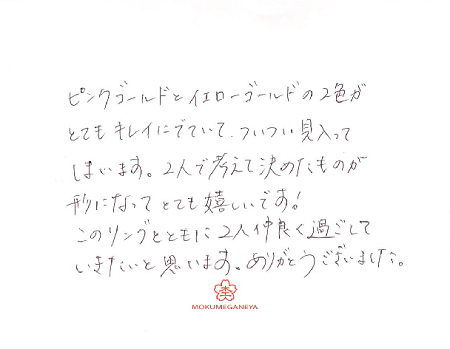 ピンクゴールドとイエローゴールドの2色が
とてもキレイにでていて、ついつい見入って
しまいます。2人で考えて決めたものが
形になってとても嬉しいです!
このリングとともに2人仲良く過ごして
いきたいと思います。ありがとうございました。
MOKUMEGANEYA